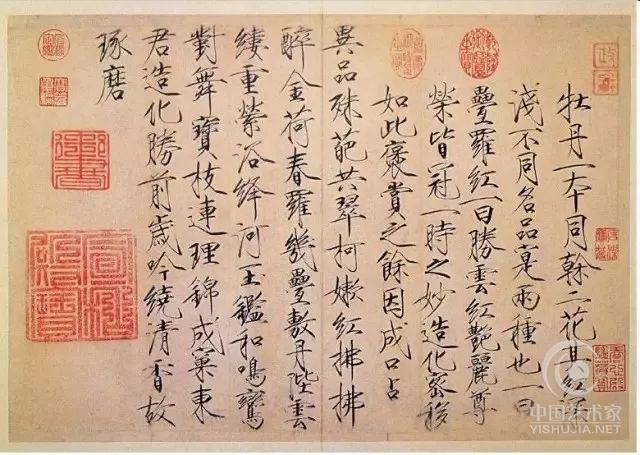 牡丹一本同榦二花其紅深
淺不同名品寔兩種也一曰
疊羅紅一曰勝雲紅艷麗尊
榮皆冠一時之妙造化密移
如此褒賞之餘因成口占
異品殊葩共翠柯嫩紅拂拂
醉金荷春羅幾疊敷丹陛雲
縷重縈浴絳河玉鑑和鳴鸞
對舞寶枝連理錦成窠東
君造化勝前歲吟繞清香故
琢磨
中国艺术家
YISHUJIA.NET